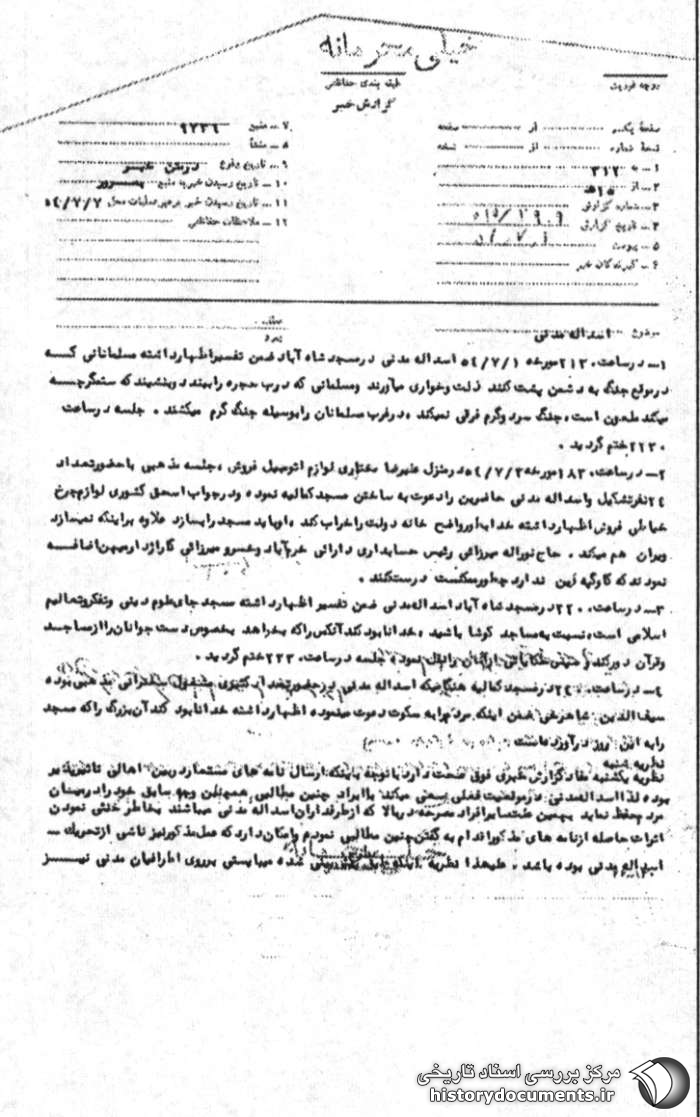 خیلی محرمانه
طبقه بندی حفاظتی
گزارش خبر
درجه فوریت
صفحه یکم از صفحه
نسخه شماره از نسخه
۱ – به ۳۱۲
۲ – از ۱۵ ه
۳ – شماره گزارش
۴ – تاریخ گزارش
۵ – پیوست
۶ – گیرندگان خبر
۷ – منبع ۹۷۳۶
۸ – منشأ
۹ – تاریخ وقوع در متن خبر
۱۰ – تاریخ رسیدن خبر به منبع بمرور
۱۱ – تاریخ رسیدن خبر به رهبر عملیات محل ۵۴/۷/۷
۱۲ – ملاحظات حفاظتی
موضوع اسداله مدنی
۱– در ساعت ۲۱۳۰ مورخه ۵۴/۷/۱ اسداله مدنی در مسجد شاه آباد ضمن تفسیر اظهار داشته مسلمانانی که
در موقع جنگ به دشمن پشت کنند ذلت و خواری میآورند و مسلمانی که درب حجره را ببندد و بنشیند که ستمگر چه
میکند ملعون است، جنگ سرد و گرم فرقی نمیکند، در غرب مسلمانان را بوسیله جنگ گرم میکشند . جلسه در ساعت
۲۲۳۰ ختم گردید .
۲– در ساعت ۱۸۳۰ مورخه ۵۴/۷/۳ در منزل علیرضا مختاری لوازم اتومبیل فروش، جلسه مذهبی با حضور تعداد
۲۴ نفر تشکیل و اسداله مدنی حاضرین را دعوت به ساختن مسجد کمالیه نموده و در جواب اسحق کشوری لوازم چرخ
خیاطی فروش اظهار داشته خدا باور واضح خانه دولت را خراب کند، او باید مسجد را بسازد علاوه بر اینکه نمیسازد
ویران هم میکند . حاج نوراله میرزائی رئیس حسابداری دارائی خرم آباد و خسرو میرزائی گاراژدار میهن اضافه
نمودند که گاو گیه زین ندارد چطور مسکست درست کنند .
۳– در ساعت ۲۲۰۰ در مسجد شاه آباد اسداله مدنی ضمن تفسیر اظهار داشته مسجد جای علوم دینی و تفکر و تعالیم
اسلامی است، نسبت به مساجد کوشا باشید، خدا نابود کند آنکس را که بخواهد بخصوص دست جوانان را از مساجد
و قرآن دور کند جلسه در ساعت ۲۲۳۰ ختم گردید .
۴– در ساعت ۲۴۰۰ در مسجد کمالیه هنگامیکه اسداله مدنی در حضور تعداد کثیری مشغول سخنرانی مذهبی بوده
سیف الدین شاهرخی ضمن اینکه مردم را به سکوت دعوت مینموده اظهار داشته خدا نابود کند آن بزرگ را که مسجد
را به این روز در آورده است
نظریه شنبه
نظریه یکشنبه مفاد گزارش خبری فوق صحت دارد با توجه باینکه ارسال نامه های مستعار در بین اهالی تاثیر پذیر
بوده لذا اسداله مدنی در موقعیت فعلی سعی میکند با ایراد چنین مطالبی همچنان وجهه سابق خود را در میان
مردم حفظ نماید بهمین علت سایر افراد مصرحه در بالا که از طرفداران اسداله مدنی میباشند بخاطر خنثی نمودن
اثرات حاصله از نامه های مذکور اقدام به گفتن چنین مطالبی نموده و امکان دارد که عمل مذکور نیز ناشی از تحریک –
اسداله مدنی بوده باشد . علیهذا نظریه اینکه شده میبایستی بر روی اطرافیان مدنی نیز
مرکز بررسی اسناد تاریخی
historydocuments.ir